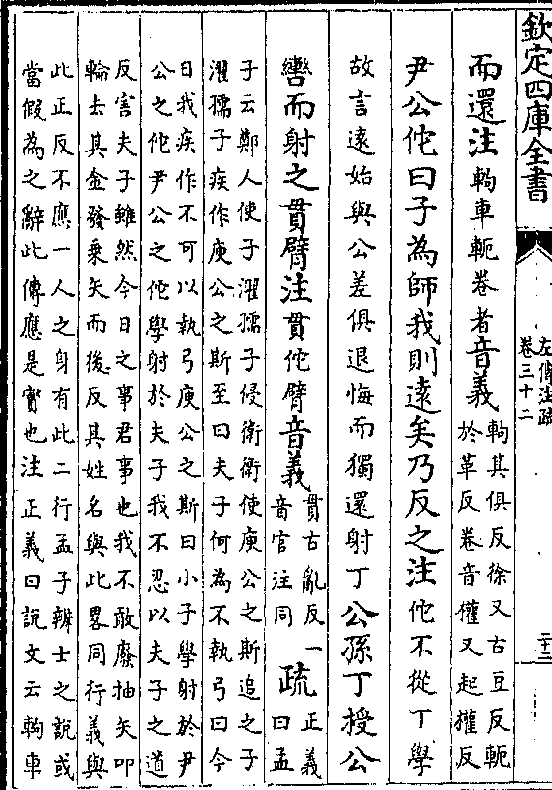 欽定四庫全書
左傳注疏
卷三十二
二十三
而還注軥車軛卷者音義軥其俱反徐又古豆反軛
於革反卷音權又起權反
尹公佗曰子為師我則遠矣乃反之注佗不從丁學
故言遠始與公差俱退悔而獨還射丁公孫丁授公
轡而射之貫臂注貫佗臂音義貫古亂反一
音官注同
疏正義
曰孟
子云鄭人使子濯孺子侵衛衛使庾公之斯追之子
濯孺子疾作庾公之斯至曰夫子何為不執弓曰今
日我疾作不可以執弓庾公之斯曰小子學射於尹
公之佗尹公之佗學射於夫子我不忍以夫子之道
反害夫子雖然今日之事君事也我不敢廢抽矢叩
輪去其金發乗矢而後反其姓名與此畧同行義與
此正反不應一人之身有此二行孟子辨士之說或
當假為之辭此傳應是實也注正義曰說文云軥車